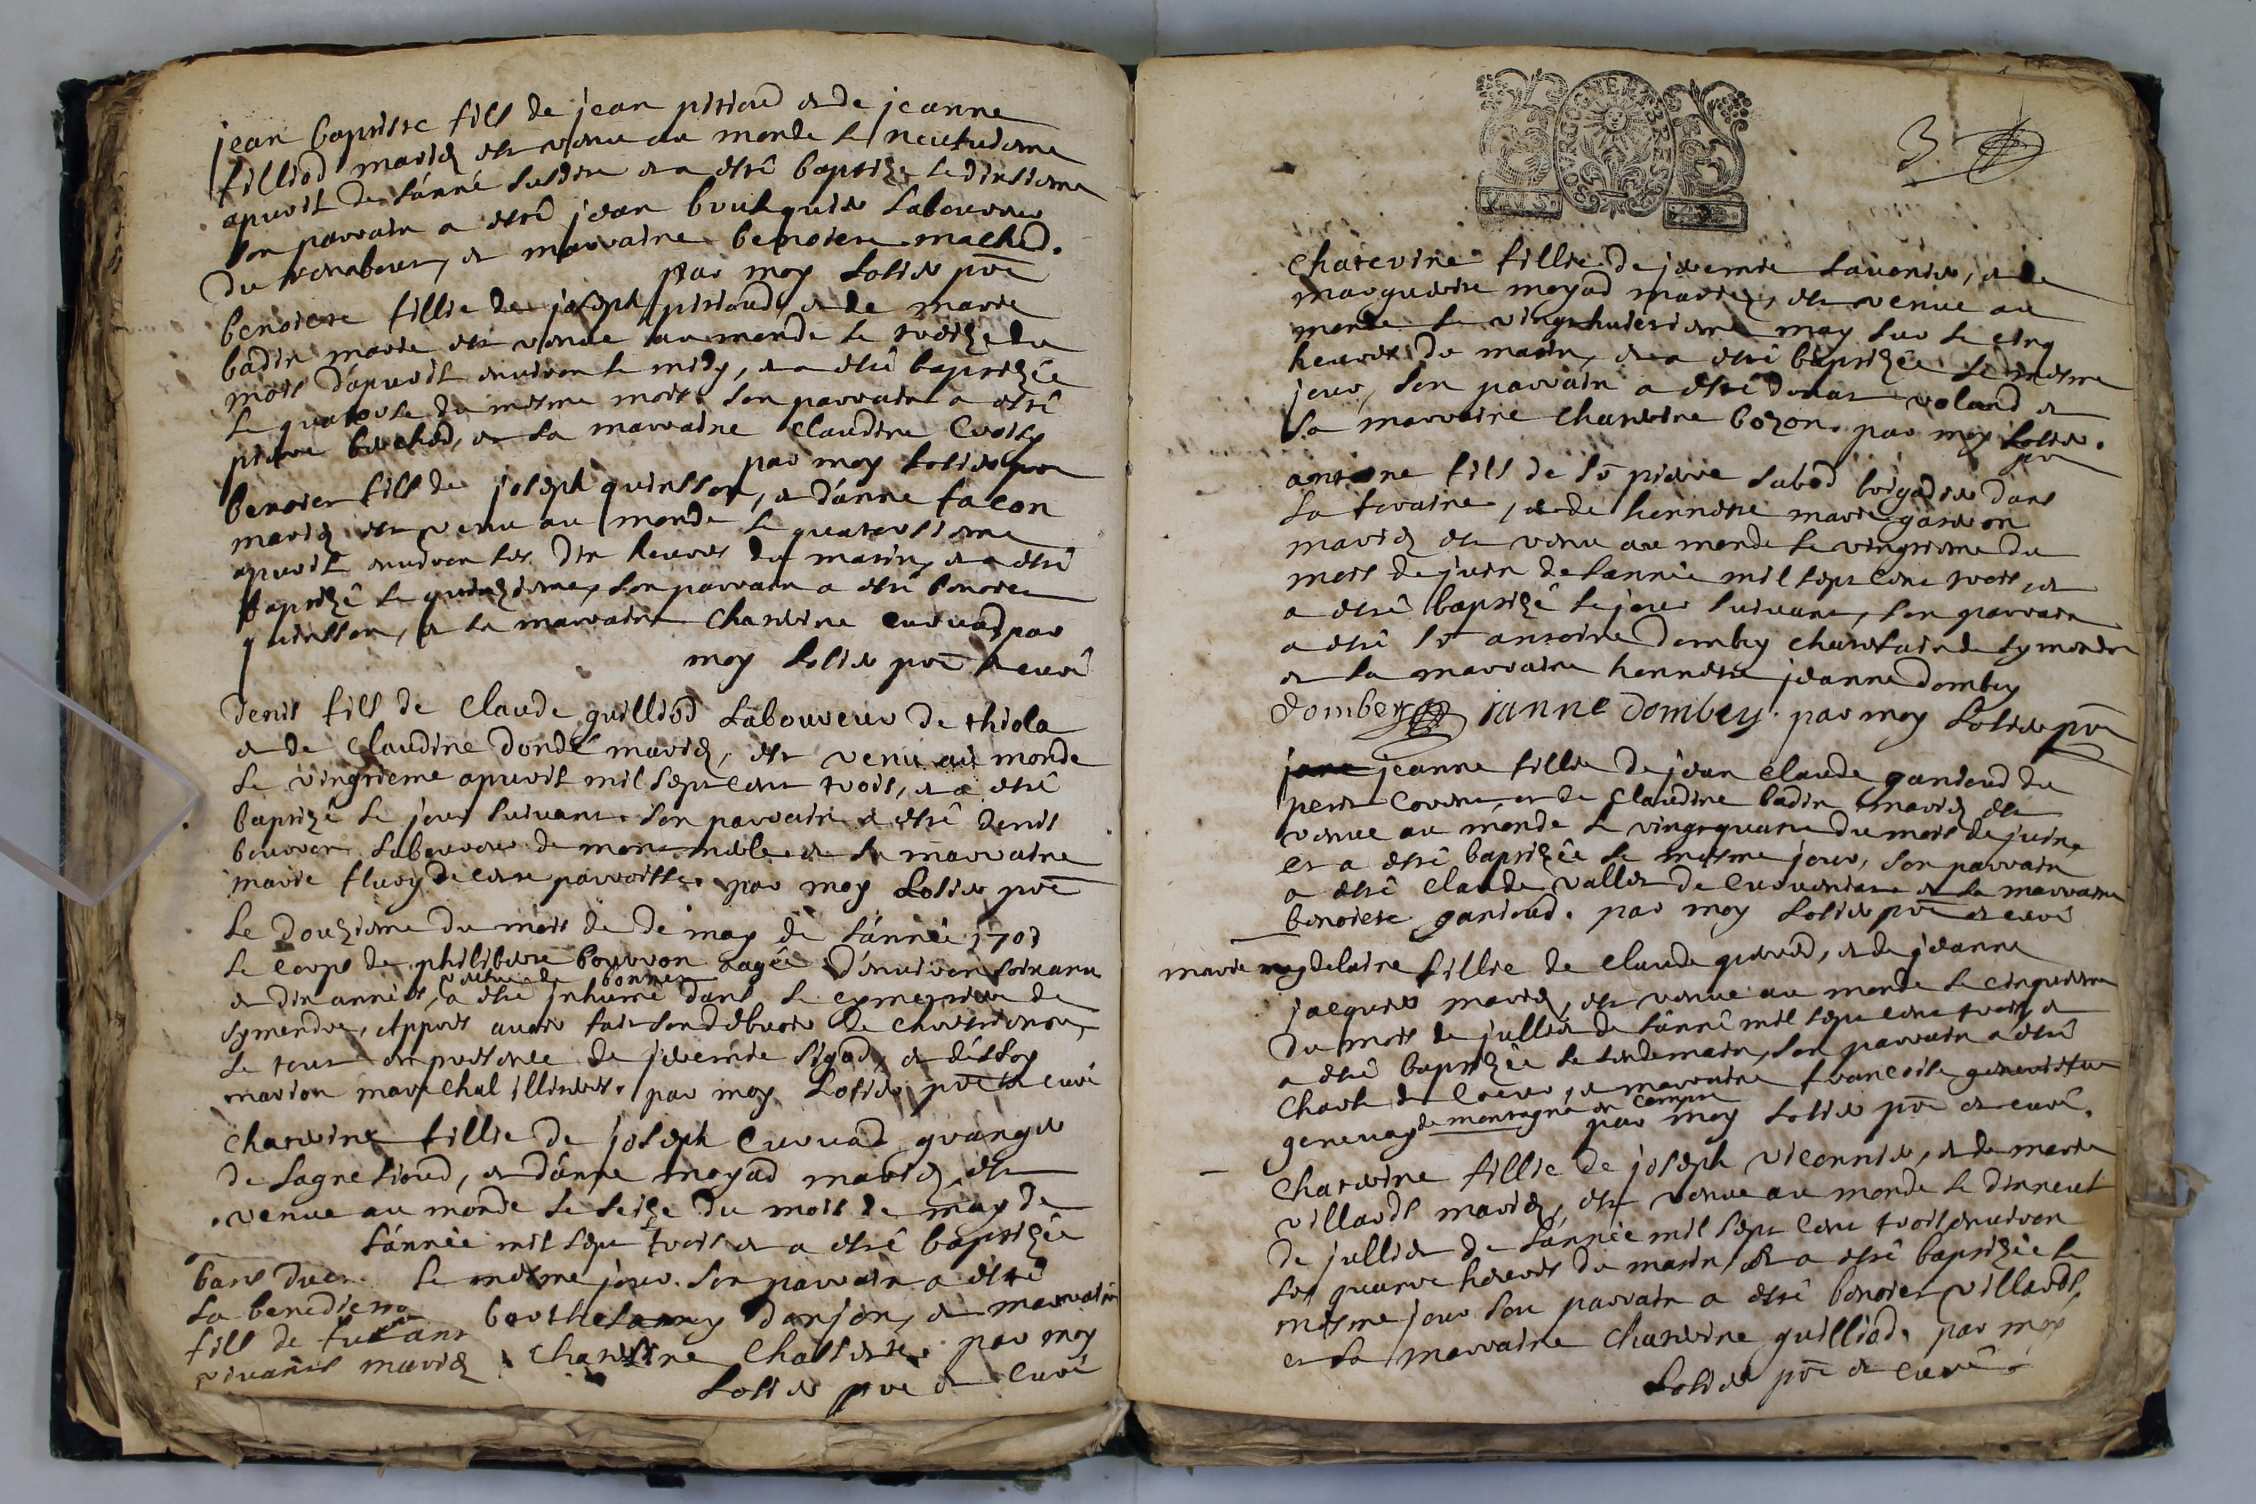 jean baptiste fils de jean pitioud et de jeanne
filliod mariez est venu au monde le neufvieme
apvril de l'année susdite et a esté baptizé le dixsieme
son parrain a esté jean laboureur
du et marraine benoiete
par moy Lolier pre
benoiete fillie de joseph pitioud, et de marie
badin marie est venue au monde le treize du
mois d'apvril environ le midy, et a esté baptizée
le quatorse du mesme mois. son parrain a esté
pierre et sa marraine claudine
par moy Lolier pre
benoiet fils de joseph quinsson, et d'anne facon
mariez est venu au monde le quatorsieme
apvril environ les dix heures du matin, et a esté
baptizé le quinzieme, son parrain a esté benoiet
quinsson, et sa marraine Chaterine par
moy Lolier pre et curé
Denis fils de Claude guilliod laboureur de thiola
et de Claudine Dondé mariez, est venu au monde
le vingtieme apvril mil sept cent trois, et a esté
baptizé le jour suivant. son parrain a esté denis
bourron laboureur de et sa marraine
marie de cette parroisse. par moy Lolier pre
Le Douzieme du mois de de may de l'année 1703
le corps de philiberte bourron aagée d'environ soixante
vefve de bonnet
et dix années, a esté inhumé dans le cymetiere de
Symandre, appres avoir fait son debvoir de chrestienne,
le tout en presence de jeremie Sigad, et d'
marion mareschal illiteres. par moy Lolier pre et curé
Chaterine fillie de joseph Curvad granger
de et d'anne moyad mariez est
venue au monde le seize du mois de may de
l'année mil sept trois et a esté baptizée
le mesme jour. son parrain a esté
barthelamy donjon, et marraine
Chaterine par moy
Lolier pre et curé
la benedictio
fils de
vivants mariez
3.
Chaterine fillie de jeremie et de
marguerite moyad mariez, est venue au
monde le vingthuictieme may sur le cinq
heures du matin, et a esté baptizée le mesme
jour, son parrain a esté Donat voland et
sa marraine Chaterine bozon. par moy Lolier.
pre
antoine fils de sr pierre brigadier dans
la et de honneste marie
mariez est venu au monde le vingtieme du
mois de juin de l'année mil sept cent trois, et
a esté baptizé le jour suivant, son parrain
a esté sr antoine Dombey chastelain de Symandre
et sa marraine honneste jeanne Dombey
Dombey janne Dombey. par moy Lolier pre
jeanne fillie de jean claude ganioud du
petit et de claudine badin mariez est
venue au monde le vingtquatre du mois de juin,
et a esté baptizée le mesme jour, son parrain
a esté claude vallet de et sa marraine
benoiete ganioud. par moy Lolier pre et curé
marie magdelaine fillie de claude et de jeanne
jacquier mariez, est venue au monde le cinquieme
du mois de jullier de l'anné mil sept cent trois, et
a esté baptizée le lendemain, son parrain a esté
Charle de et marraine francoise
de montagna
par moy Lolier pre et curé.
Chaterine fillie de joseph viconnier, et de marie
villards mariez, est venue au monde le dixneuf
de jullier de l'année mil sept cent trois environ
les quatre heures du matin, et a esté baptizée le
mesme jour son parrain a esté benoiet villards,
et sa marraine Chaterine guilliod. par moy
Lolier pre et curé